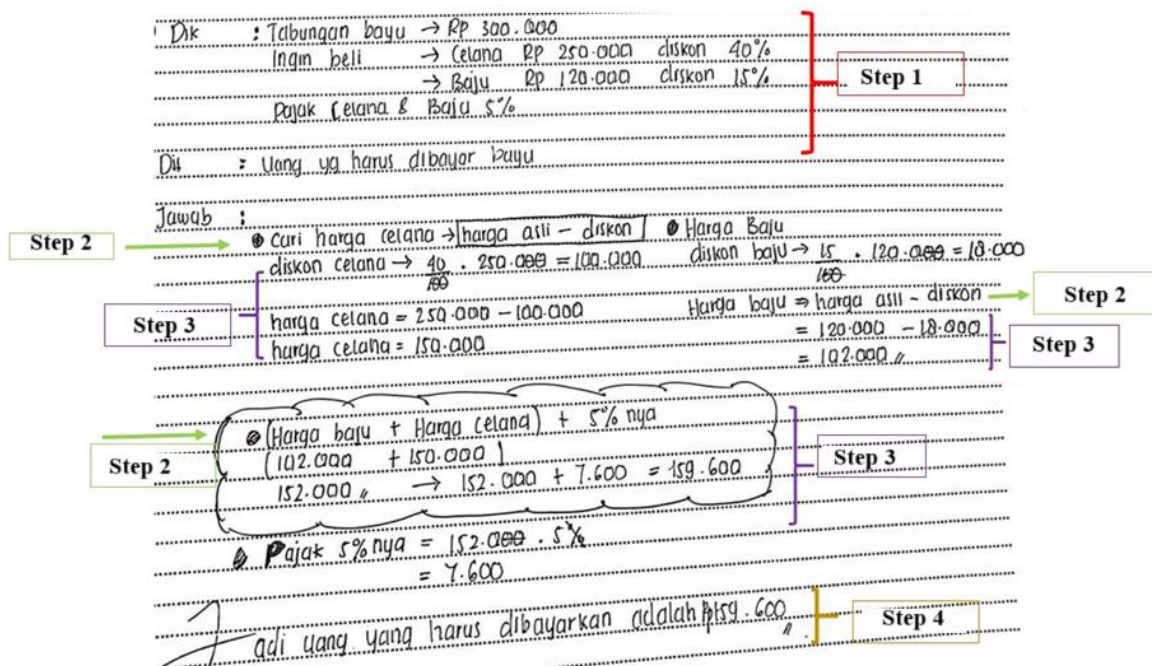 Dik : Tabungan bayu → Rp 300.000
Ingin beli → Celana Rp 250.000 diskon 40%
→ Baju Rp 120.000 diskon 15%
Pajak Celana & Baju 5%
Step 1
Dit : Uang yg harus dibayar bayu
Jawab :
Step 2
• Cari harga celana → harga asli - diskon
diskon celana → 40/100 . 250.000 = 100.000
harga celana = 250.000 - 100.000
harga celana = 150.000
Step 3
• Harga Baju
diskon baju → 15/100 . 120.000 = 18.000
Harga baju ⇒ harga asli - diskon
Step 2
= 120.000 - 18.000
= 102.000 //
Step 3
Step 2
• (Harga baju + Harga celana) + 5% nya
(102.000 + 150.000)
152.000 // → 152.000 + 7.600 = 159.600
Step 3
• Pajak 5% nya = 152.000 . 5%
= 7.600
Jadi uang yang harus dibayarkan adalah Rp159.600 //
Step 4